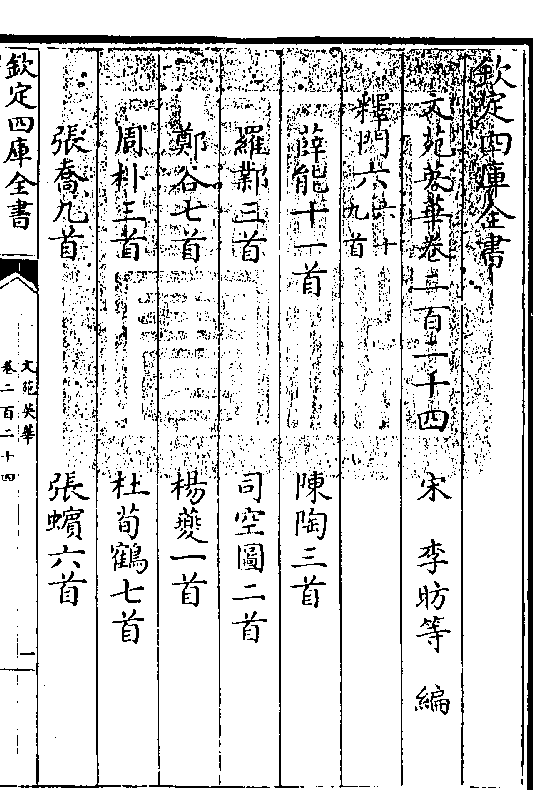 欽定四庫全書
文苑英華卷二百二十四　宋　李昉等　編
釋門六六十九首
薛能十一首　陳陶三首
羅鄴三首　司空圖二首
鄭谷七首　楊夔一首
周朴三首　杜荀鶴七首
張喬九首　張蠙六首
欽定四庫全書
文苑英華
卷二百二十四
一